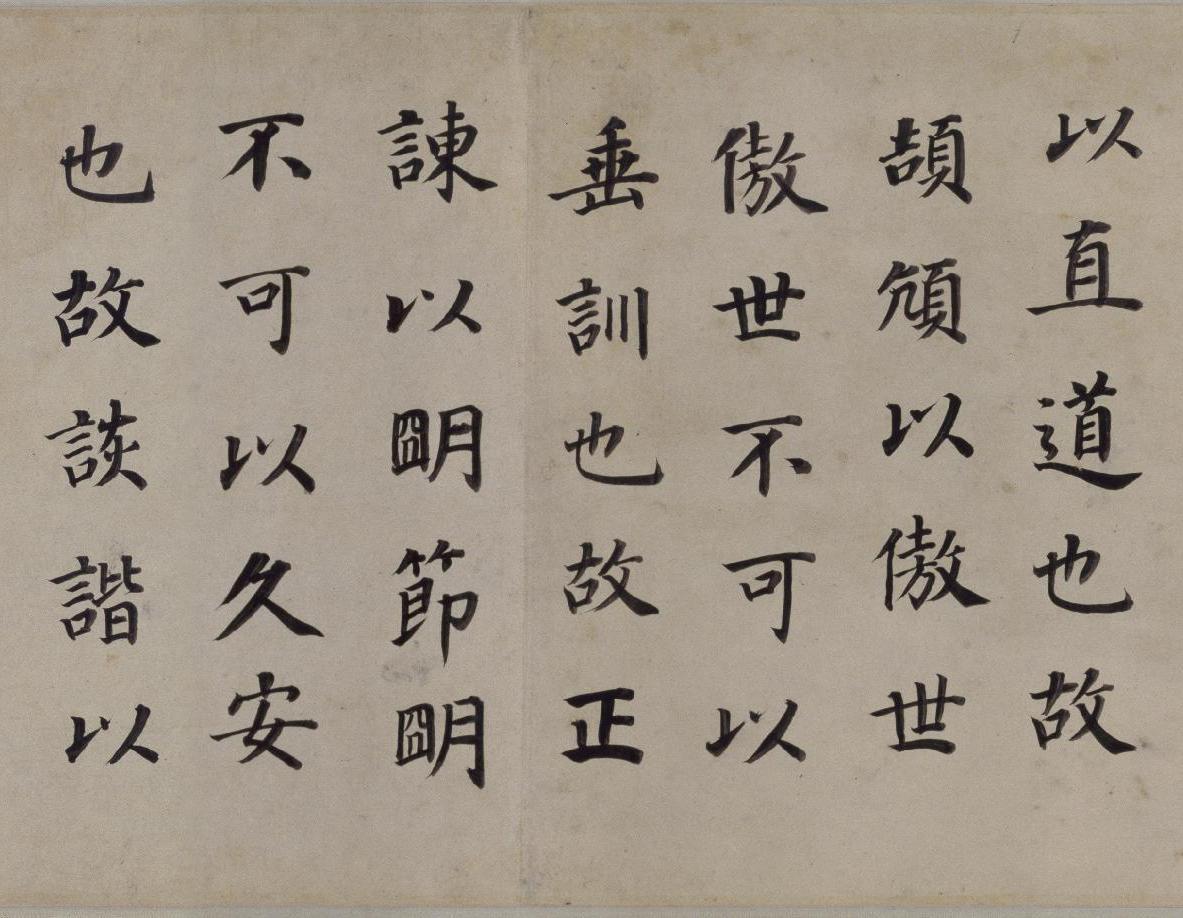 以直道也故
頡頏以傲世
傲世不可以
垂訓也故正
諫以朙節朙
不可以久安
也故談諧以